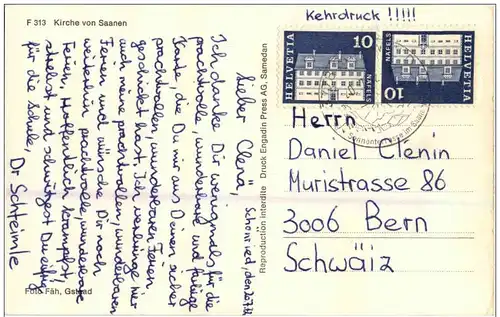 F 313 Kirche von Saanen
Kehrdruck !!!!!
HELVETIA
10
NÄFELS
HELVETIA
10
NÄFELS
Sonnenterrasse im
Schönried, den
Lieber Clenä,
Ich danke Dir vielmals für die
prachtvolle, wunderbare und farbige
Karte, die Du mir aus Deinen sicher
prachtvollen, wunderbaren Ferien
geschickt hast. Ich verbringe hier
auch meine prachtvollen, wunderbaren
Ferien und wünsche Dir noch
weiterhin prachtvolle, wunderbare
Ferien. Hoffentlich krampfst,
strebst und schwitzest Du eifrig
für die Schule.
Dr Schteimle
Foto Fäh, Gstaad
Reproduction interdite Druck Engadin Press AG, Samedan
Herrn
Daniel Clenin
Muristrasse 86
3006 Bern
Schwäiz